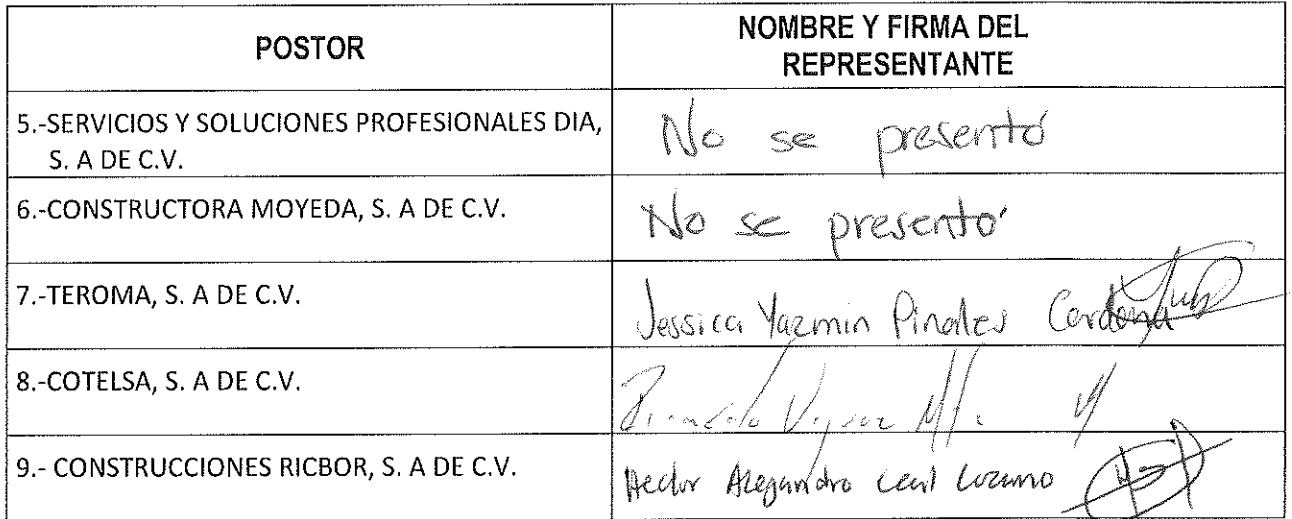 POSTOR
NOMBRE Y FIRMA DEL
REPRESENTANTE
5.-SERVICIOS Y SOLUCIONES PROFESIONALES DIA,
S. A DE C.V.
No se presentó
6.-CONSTRUCTORA MOYEDA, S. A DE C.V.
No se presentó
7.-TEROMA, S. A DE C.V.
Jessica Yazmin Pinales Cardona
8.-COTELSA, S. A DE C.V.
9.- CONSTRUCCIONES RICBOR, S. A DE C.V.
Hector Alejandro Leal Lozano